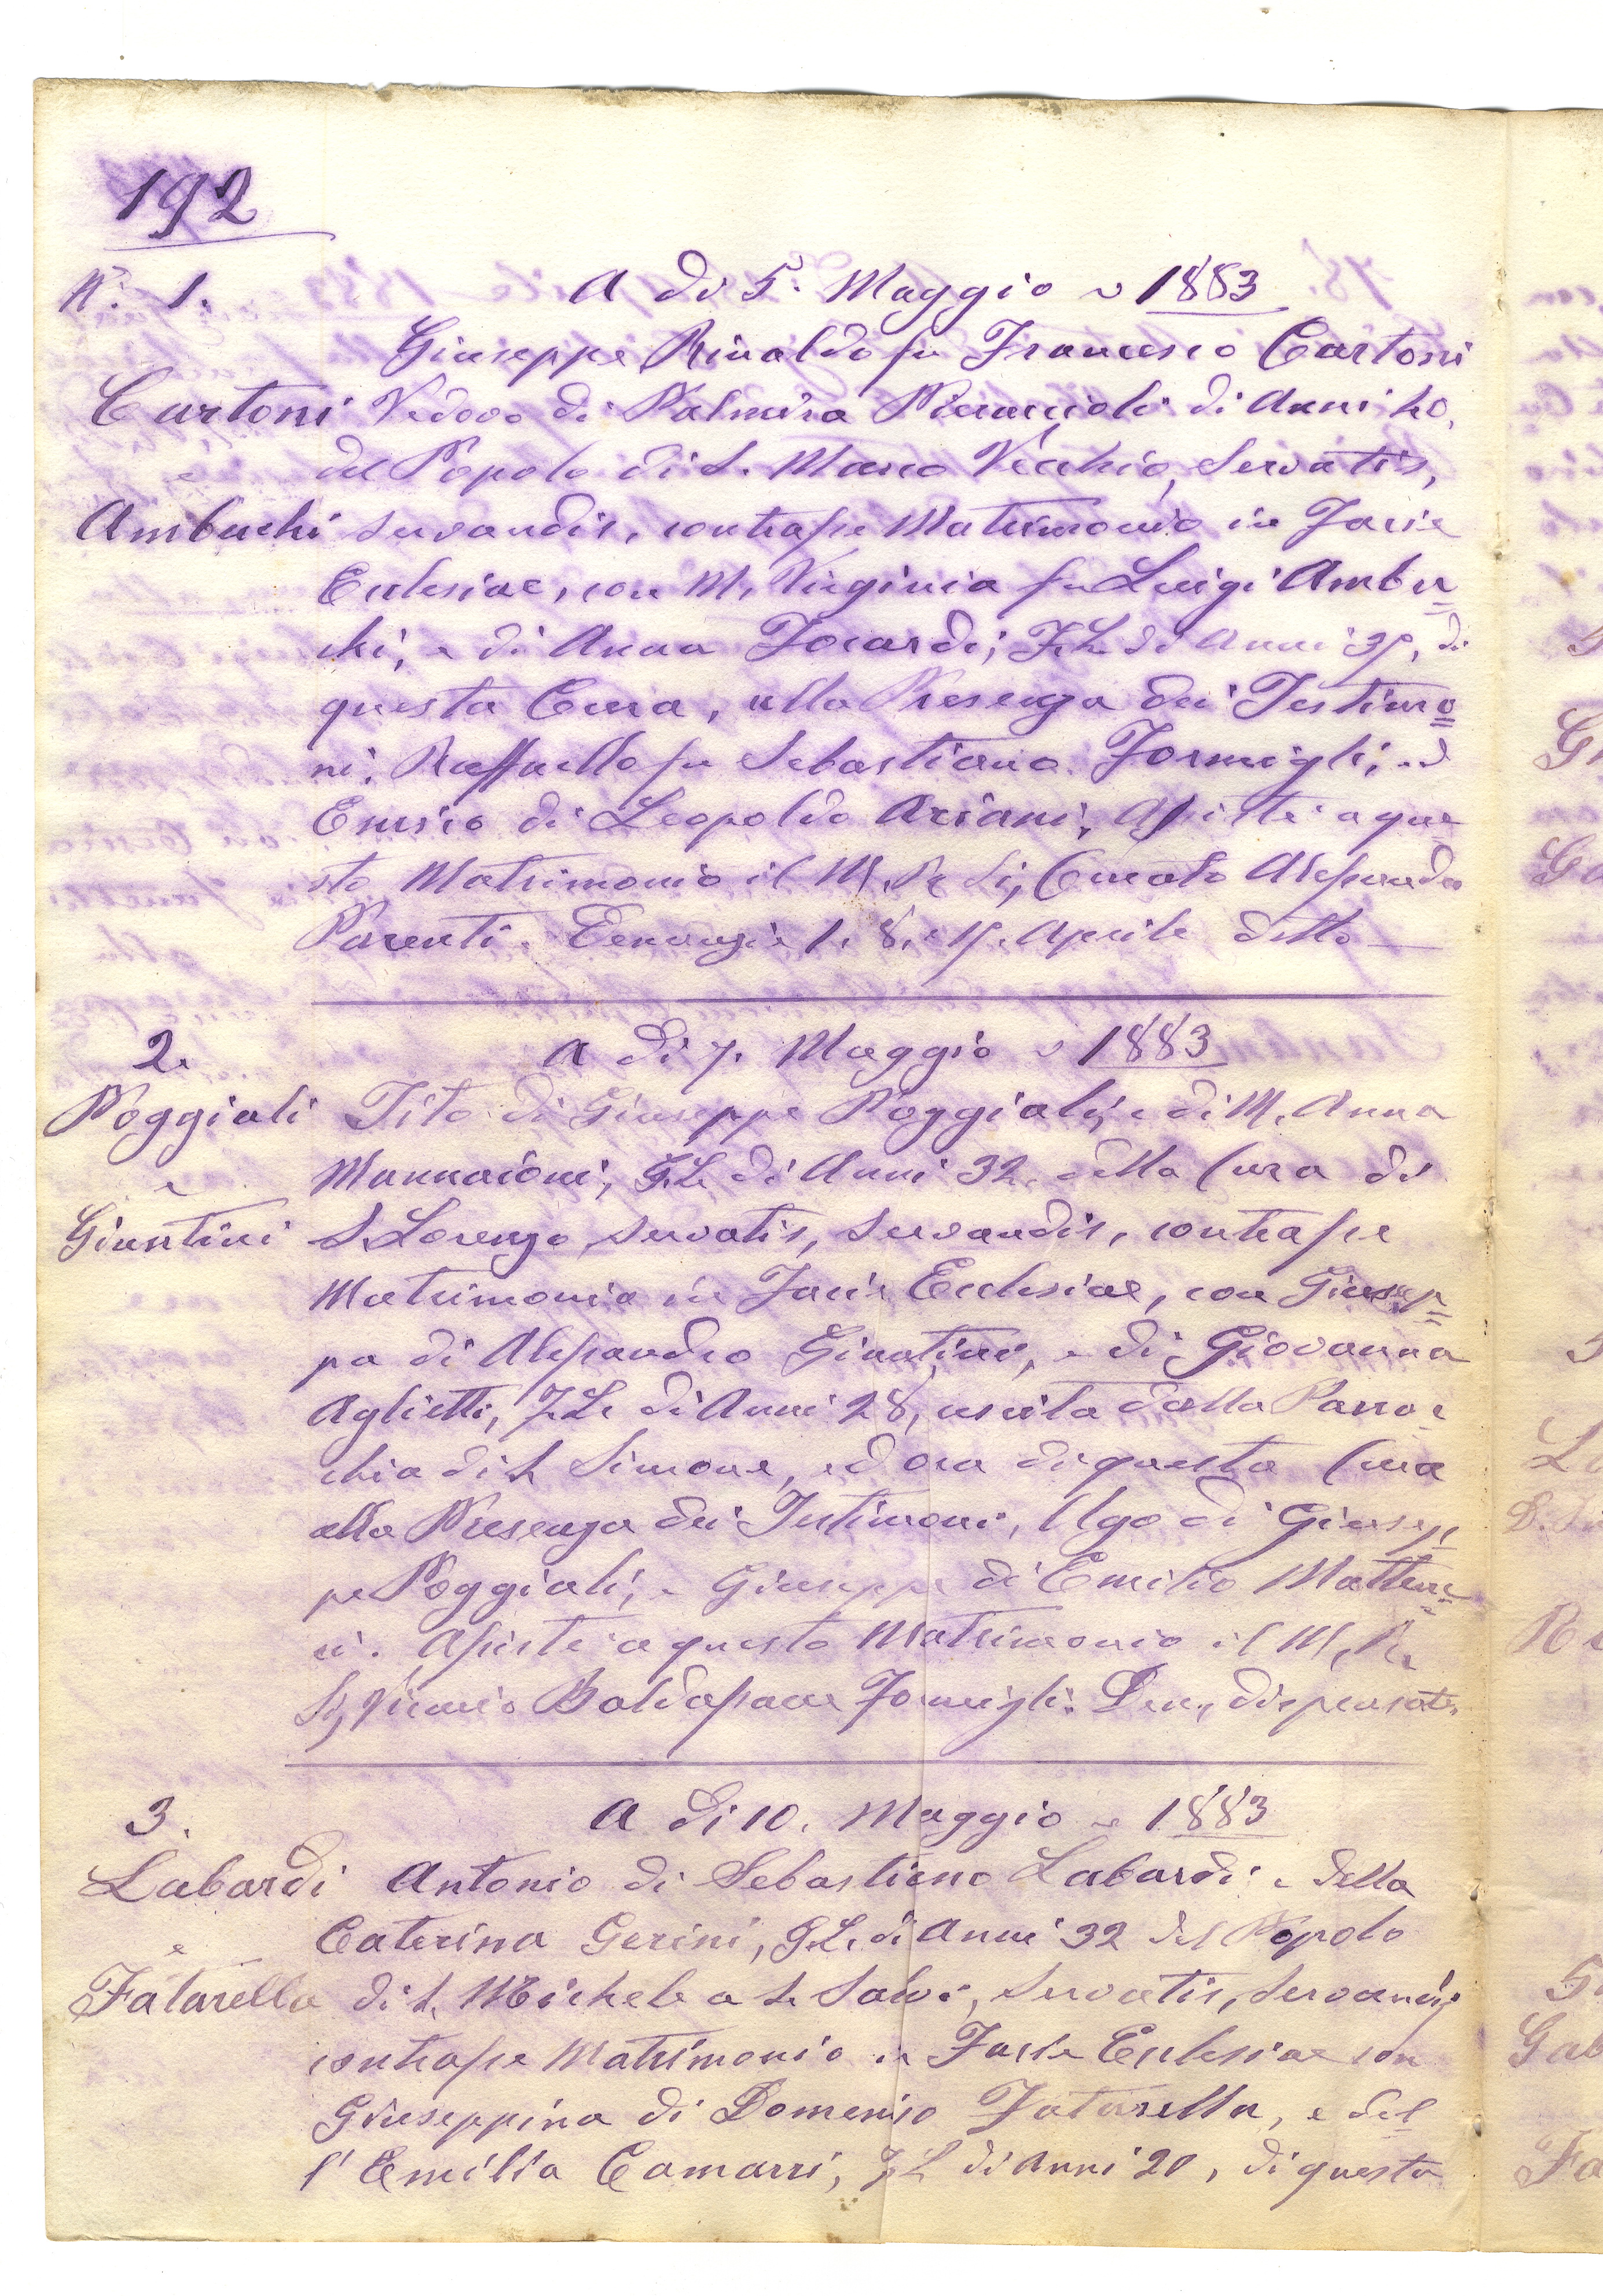 192
N.° 1.
A dì 5. Maggio 1883
Giuseppe Rinaldo fu Francesco Cartoni
Cartoni
Vedovo di Palmira di Anni
e
del Popolo di S. Marco Vecchio, Servatis,
Ambuchi
servandis, contrasse Matrimonio in Facie
Ecclesiae, con M. Virginia fu Luigi Ambu=
chi, e di Anna Focardi; F.L. di Anni 37, di
questa Cura, alla Presenza dei Testimo=
ni. Raffaello fu Sebastiano Formigli, ed
di Leopoldo Assisté a que
sto Matrimonio il M. R. Sig. Curato Alessandro
Parenti. 1. 8. e Aprile detto
2.
A dì 7. Maggio 1883
Poggiali
Tito di Giuseppe Poggiali, e di M. Anna
e
Mannaioni, F.L. di Anni 32. della Cura di
Giuntini
S. Lorenzo, servatis, servandis, contrasse
Matrimonio in Facie Ecclesiae, con Giusep=
pa di Alessandro Giuntini, e di Giovanna
Aglietti, F.L. di Anni 28, uscita dalla Parro=
chia di S. Simone, ed ora di questa Cura
alla Presenza dei Testimoni, Ugo di Giusep=
pe Poggiali, e Giuseppe di Emilio
ni. Assisté a questo Matrimonio il M. R.
Sig. Baldassarre Formigli. Den. dispensate.
3.
A dì 10. Maggio 1883
Labardi
Antonio di Sebastiano Labardi e della
e
Caterina Gerini, F.L. di Anni 32 del Popolo
Fatarella
di S. Michele a S. Salvi, Servatis, Servandis
contrasse Matrimonio in Facie Ecclesiae con
Giuseppina di Domenico Fatarella, e del=
l'Emilia Camarri, F.L. di Anni 20, di questa